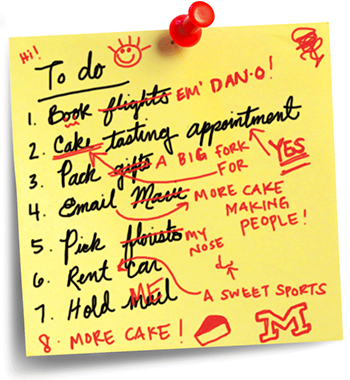 Hi!
To do
1. Book flights EM' DAN-O!
2. Cake tasting appointment
YES
3. Pack gifts A BIG FORK FOR
4. Email MORE CAKE MAKING PEOPLE!
5. Pick florists MY NOSE
6. Rent car
A SWEET SPORTS
7. Hold mail ME
8. MORE CAKE!
M